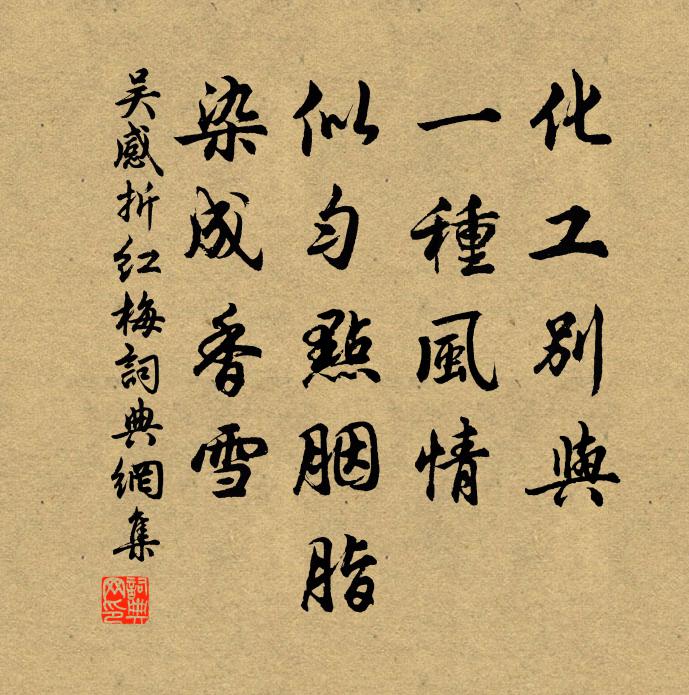 化工別與
一種風情
似勻點胭脂
染成香雪
吴感折紅梅詞典網集
詞典网印